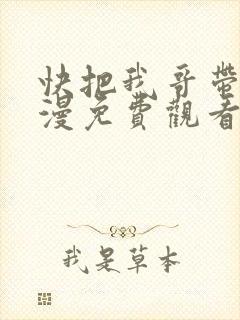 快把我哥帶
漫免費觀看
我是草本